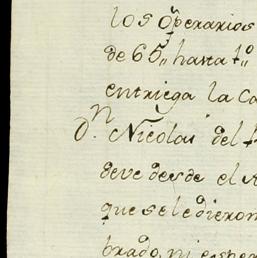 los operarios
de 65,, hasta 1°
entriega la Ca
Dn. Nicolas del
deve desde el
que se le dieron
brado, ni esper